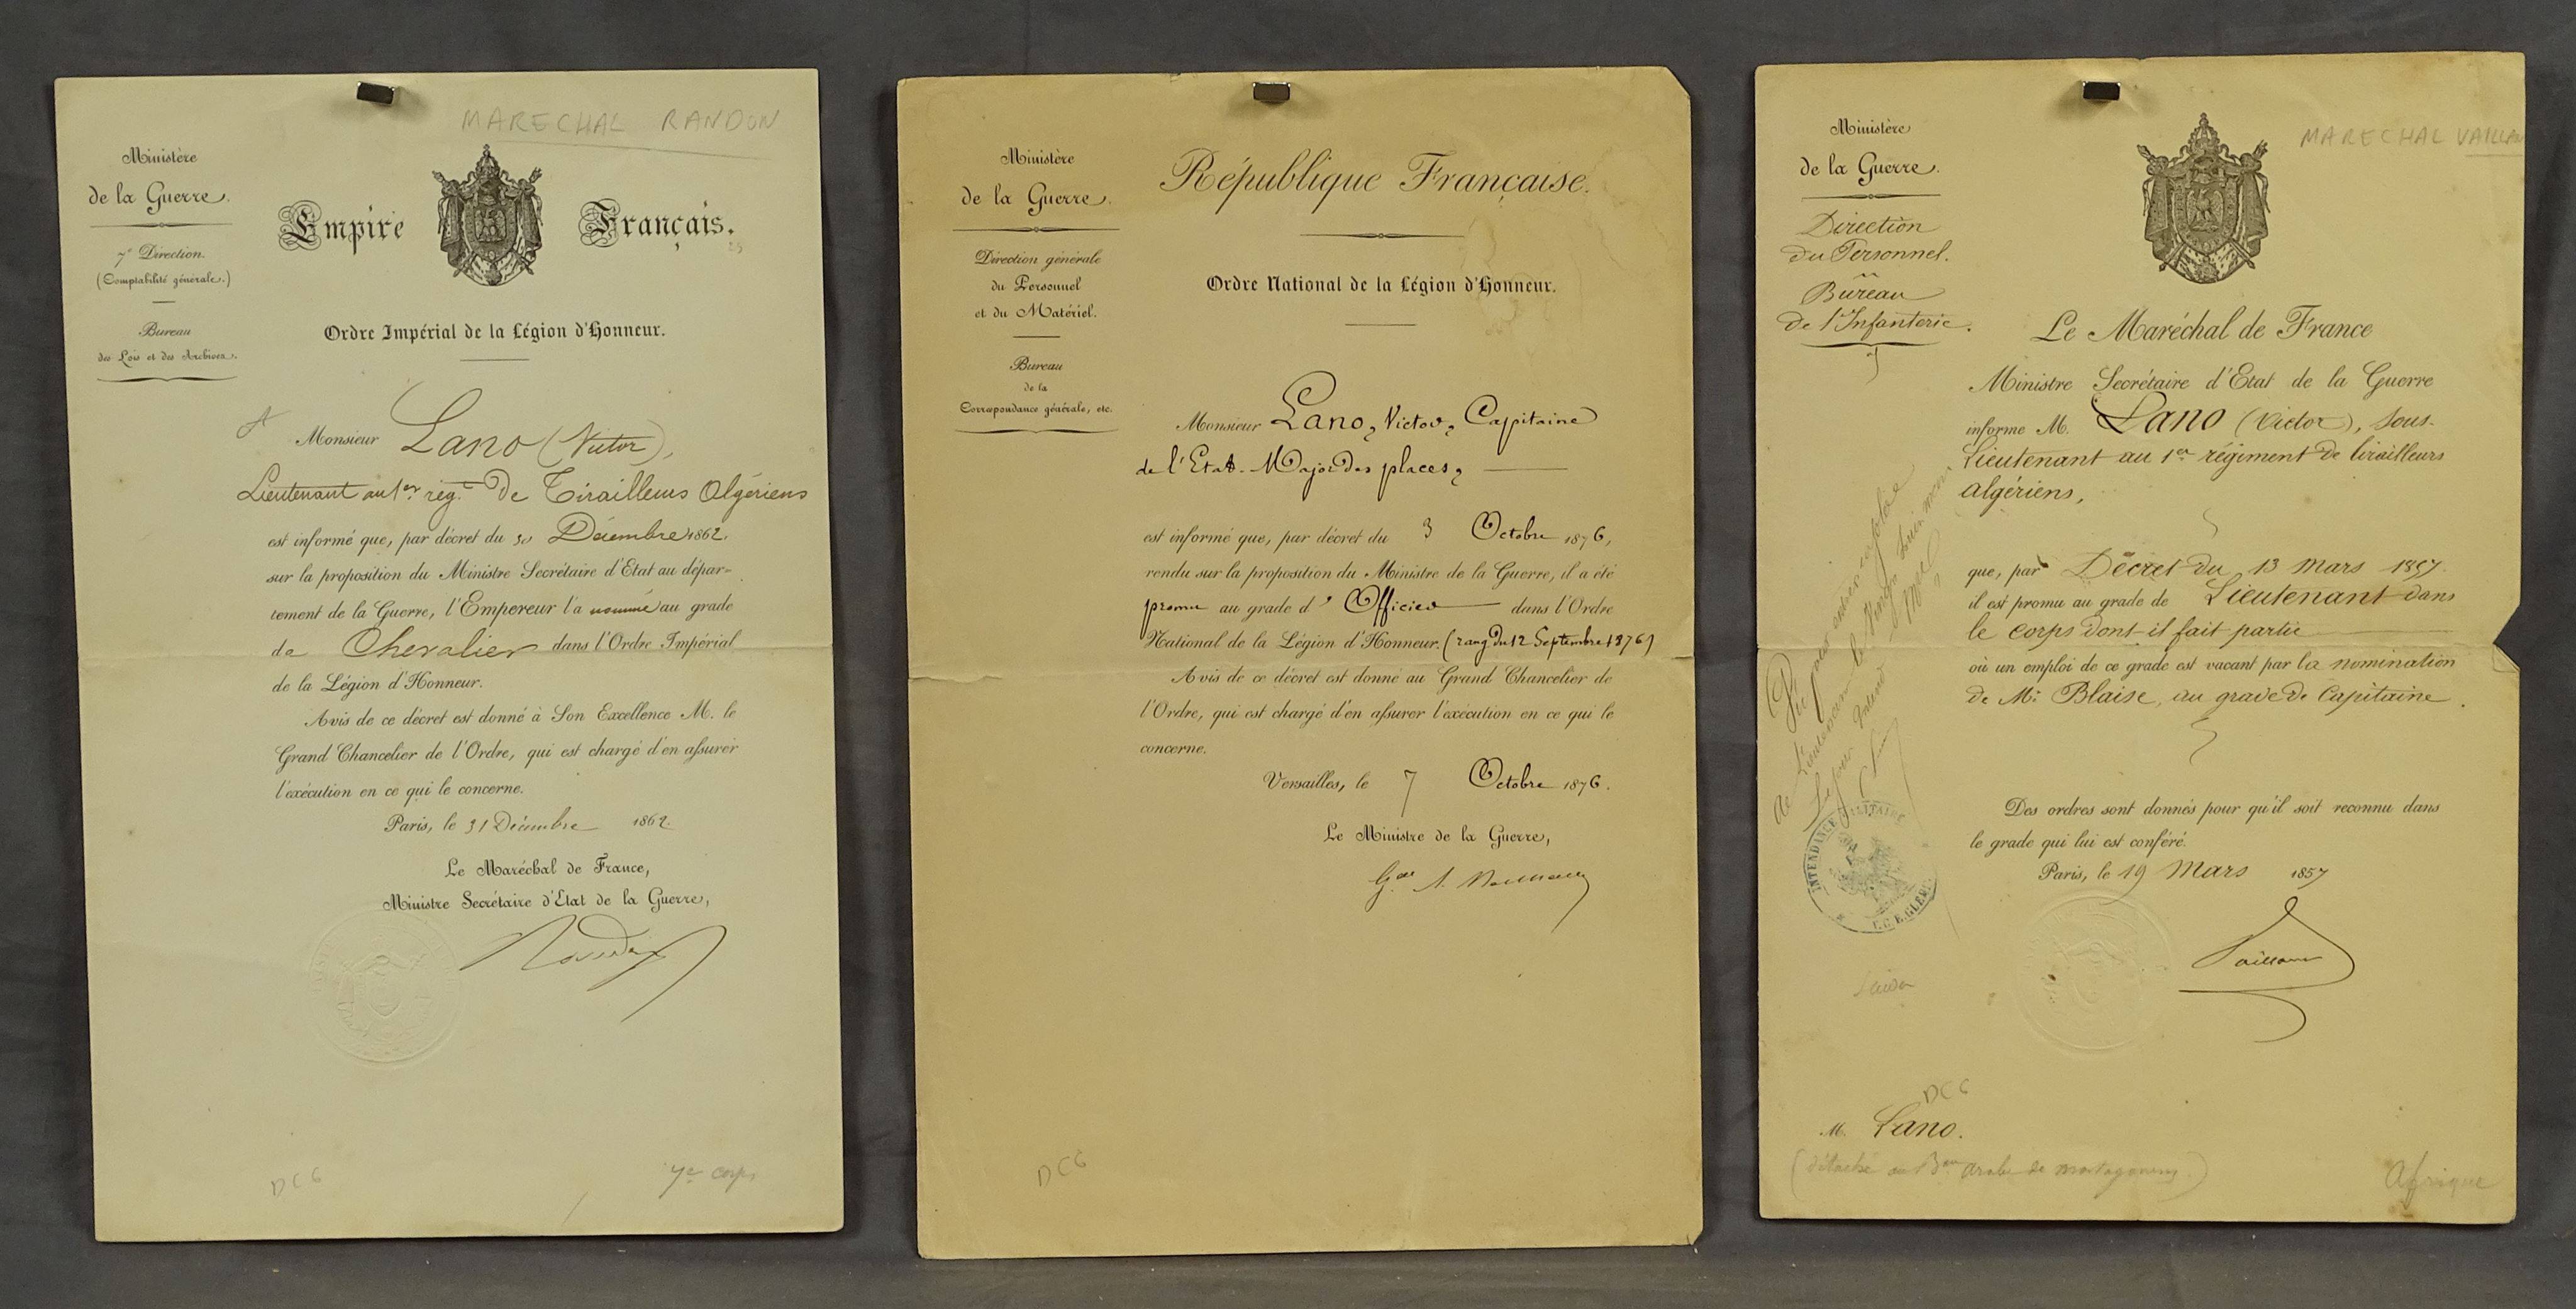 MARECHAL RANDON
Ministère
de la Guerre.
7e Direction.
(Comptabilité générale.)
Bureau
des Lois et des Archives.
Empire Français.
Ordre Impérial de la Légion d'Honneur.
Monsieur Lano (Victor),
Lieutenant au 1er régt de Tirailleurs Algériens
est informé que, par décret du 30 Décembre 1862,
sur la proposition du Ministre Secrétaire d'Etat au dépar-
tement de la Guerre, l'Empereur l'a nommé au grade
de Chevalier dans l'Ordre Impérial
de la Légion d'Honneur.
Avis de ce décret est donné à Son Excellence M. le
Grand Chancelier de l'Ordre, qui est chargé d'en assurer
l'exécution en ce qui le concerne.
Paris, le 31 Décembre 1862.
Le Maréchal de France,
Ministre Secrétaire d'Etat de la Guerre,
Randon
DCG
7e corps
Ministère
de la Guerre.
Direction générale
du Personnel
et du Matériel.
Bureau
de la
Correspondance générale, etc.
République Française.
Ordre National de la Légion d'Honneur.
Monsieur Lano, Victor, Capitaine
de l'Etat-Major des places,
est informé que, par décret du 3 Octobre 1876,
rendu sur la proposition du Ministre de la Guerre, il a été
promu au grade d'Officier dans l'Ordre
National de la Légion d'Honneur. (rang du 12 Septembre 1876)
Avis de ce décret est donné au Grand Chancelier de
l'Ordre, qui est chargé d'en assurer l'exécution en ce qui le
concerne.
Versailles, le 7 Octobre 1876.
Le Ministre de la Guerre,
Gal A.
DCG
MARECHAL VAILLAN
Ministère
de la Guerre.
Direction
du Personnel.
Bureau
de l'Infanterie.
Le Maréchal de France
Ministre Secrétaire d'Etat de la Guerre
informe M. Lano (Victor), Sous-
Lieutenant au 1er régiment de tirailleurs
algériens,
que, par Décret du 13 Mars 1857
il est promu au grade de Lieutenant dans
le corps dont il fait partie
où un emploi de ce grade est vacant par la nomination
de Mr Blaise, au grade de Capitaine.
Des ordres sont donnés pour qu'il soit reconnu dans
le grade qui lui est conféré.
Paris, le 19 Mars 1857
Vaillant
INTENDANCE MILITAIRE
DCG
M. Lano.
(détaché au Bau arabe de mostaganem)
Afrique